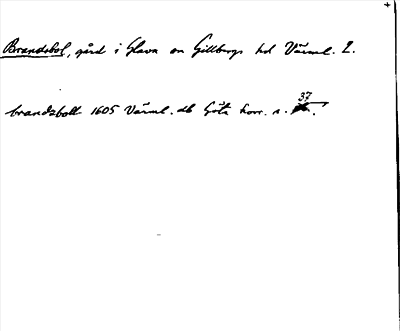 Brandsbol, gård i Glava sn Gillbergs hd Värml. L.
brandzboll 1605 Värml. db Göta hovr. n. 37.